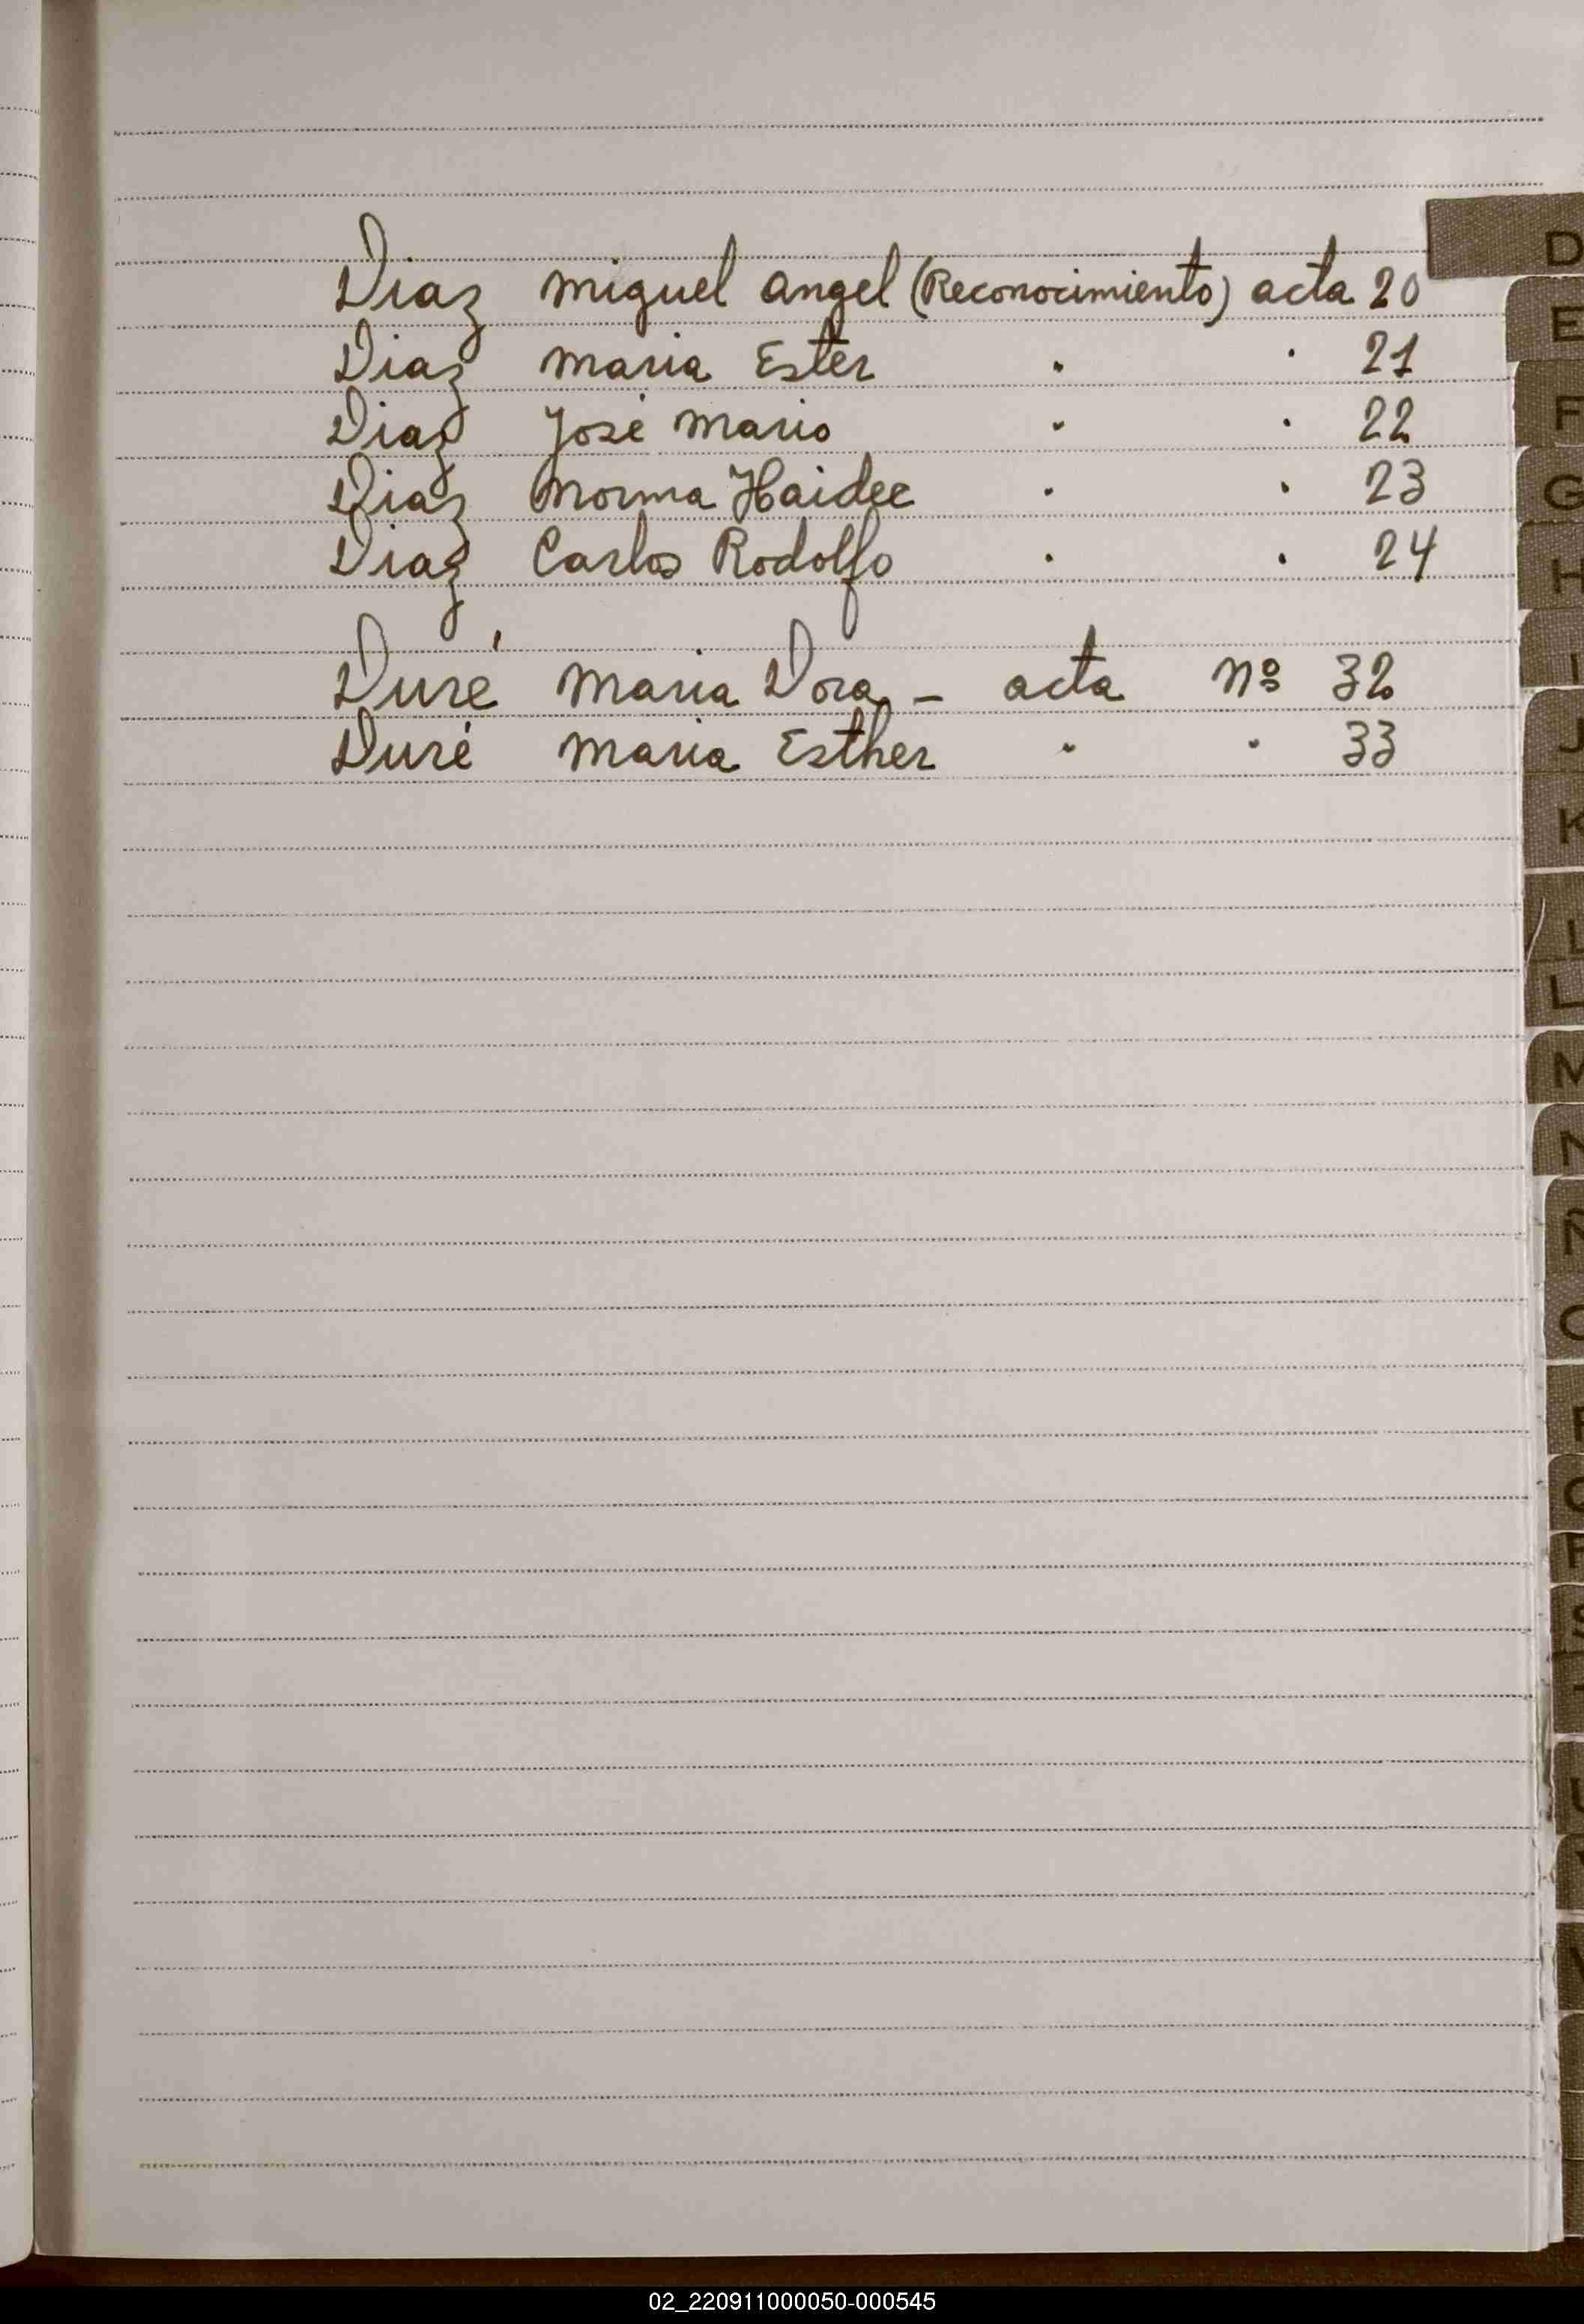 Diaz Miguel Angel (Reconocimiento) acta 20
Diaz Maria Ester . . 21
Diaz José Mario . . 22
Diaz Norma Haidee . . 23
Diaz Carlos Rodolfo . . 24
Duré Maria Dora - acta Nº 32
Duré Maria Esther . . 33
D
E
F
G
H
I
J
K
L
L
M
N
Ñ
O
P
Q
R
S
T
U
V
02_220911000050-000545